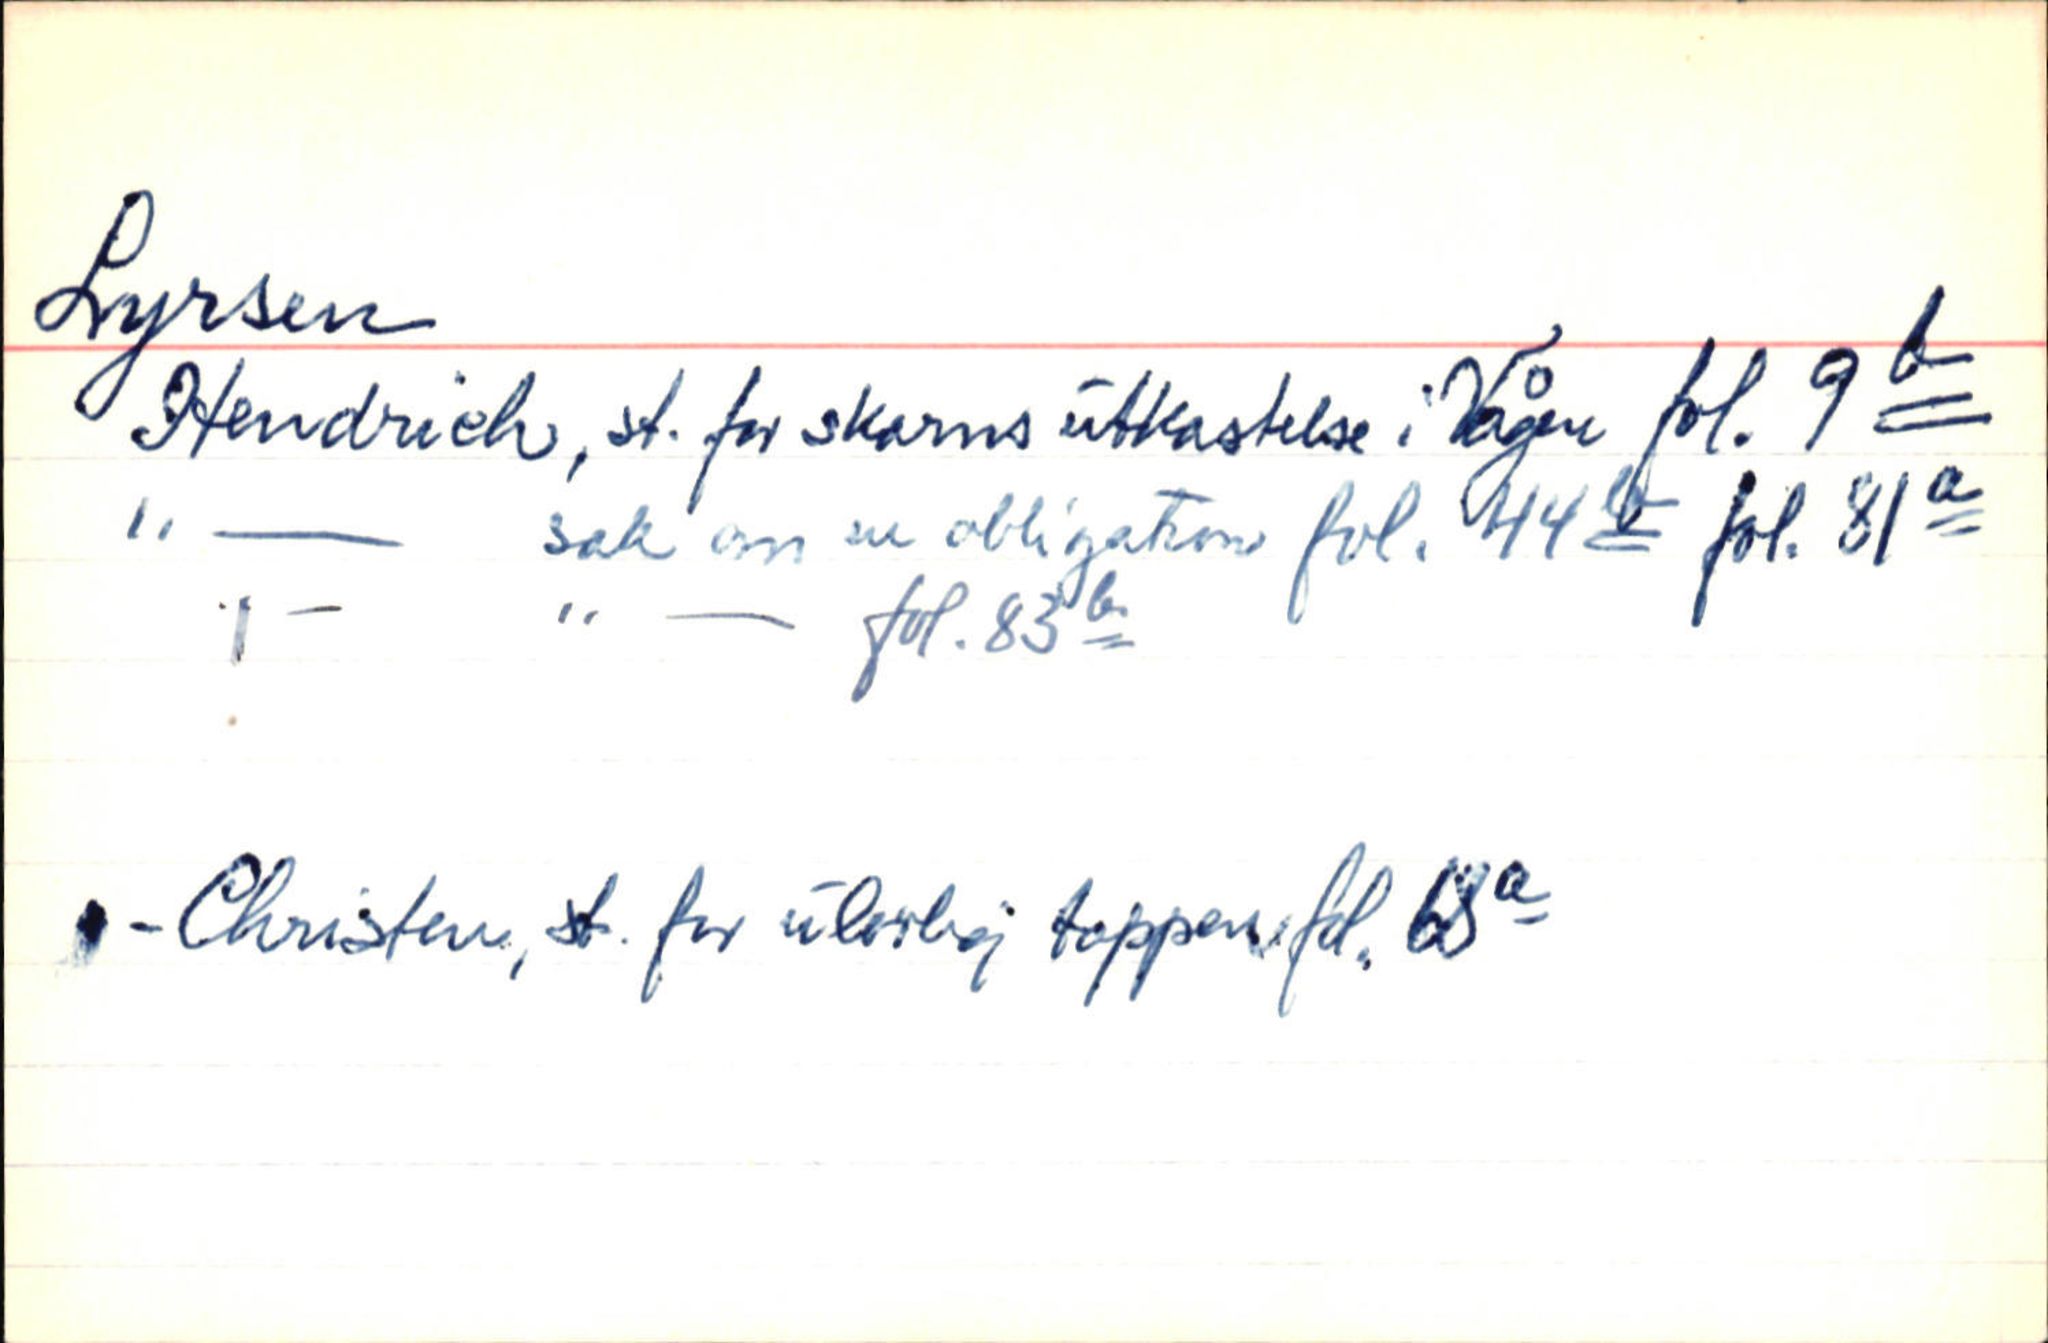 Lyrsen
Hendrich, st. for skarns ütkastelse i Vågen fol. 9 b
" — sak om en obligation fol. 44 b fol. 81 a
" — " — fol. 83 b
- Christen, st. for ülovlig tappen fol.